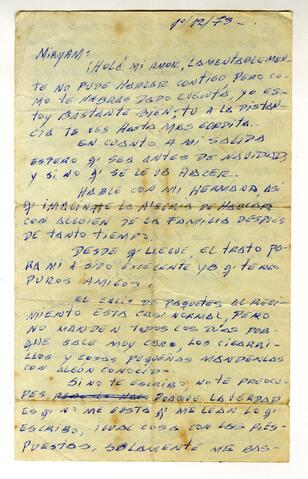 1º/12/73-
MIRYAM:
¡HOLA MI AMOR, LAMENTABLEMEN
TE NO PUDE HABLAR CONTIGO PERO CO-
MO TE HABRAS DADO CUENTA, YO ES-
TOY BASTANTE BIEN; TU A LA DISTAN-
CIA TE VES HASTA MAS GORDITA.
EN CUANTO A MI SALIDA
ESPERO q' SEA ANTES DE NAVIDAD,
Y SI NO q' SE LE VA HACER.
HABLÉ CON MI HERMANA ASI
q' IMAGINATE LA ALEGRIA DE HABLAR
CON ALGUIEN DE LA FAMILIA DESPUES
DE TANTO TIEMPO.
DESDE q' LLEGUE, EL TRATO PA
RA MI A SIDO EXCELENTE YA q' TENGO
PUROS AMIGOS.
EL ENVIO DE PAQUETES AL REGI-
MIENTO ESTA CASI NORMAL, PERO
NO MANDEN TODOS LOS DÍAS POR
QUE SALE MUY CARO, LOS CIGARRI-
LLOS Y COSAS PEQUEÑAS MANDENLAS
CON ALGÚN CONOCIDO.
SI NO TE ESCRIBO, NO TE PREOCU-
PES, PORQUE LA VERDAD
ES q' NO ME GUSTA q' ME LEAN LO q'
ESCRIBO, IGUAL COSA CON LAS RES-
PUESTAS, SOLAMENTE ME BAS-